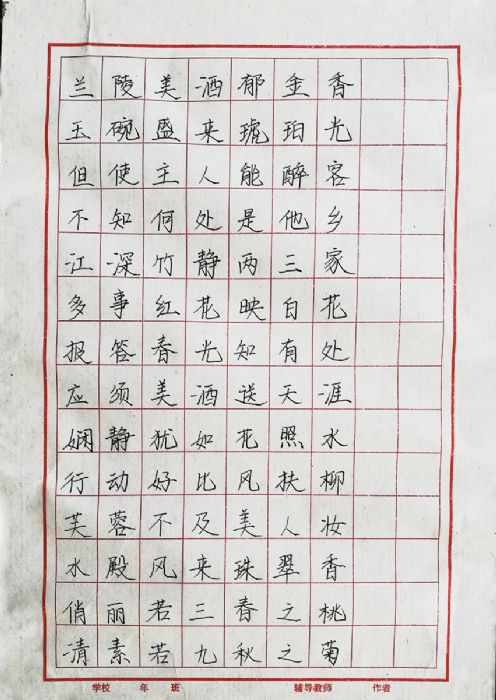 兰陵美酒郁金香
玉碗盛来琥珀光
但使主人能醉客
不知何处是他乡
江深竹静两三家
多事红花映白花
报答春光知有处
应须美酒送天涯
娴静犹如花照水
行动好比风扶柳
芙蓉不及美人妆
水殿风来珠翠香
俏丽若三春之桃
清素若九秋之菊
学校 年 班 辅导教师 作者